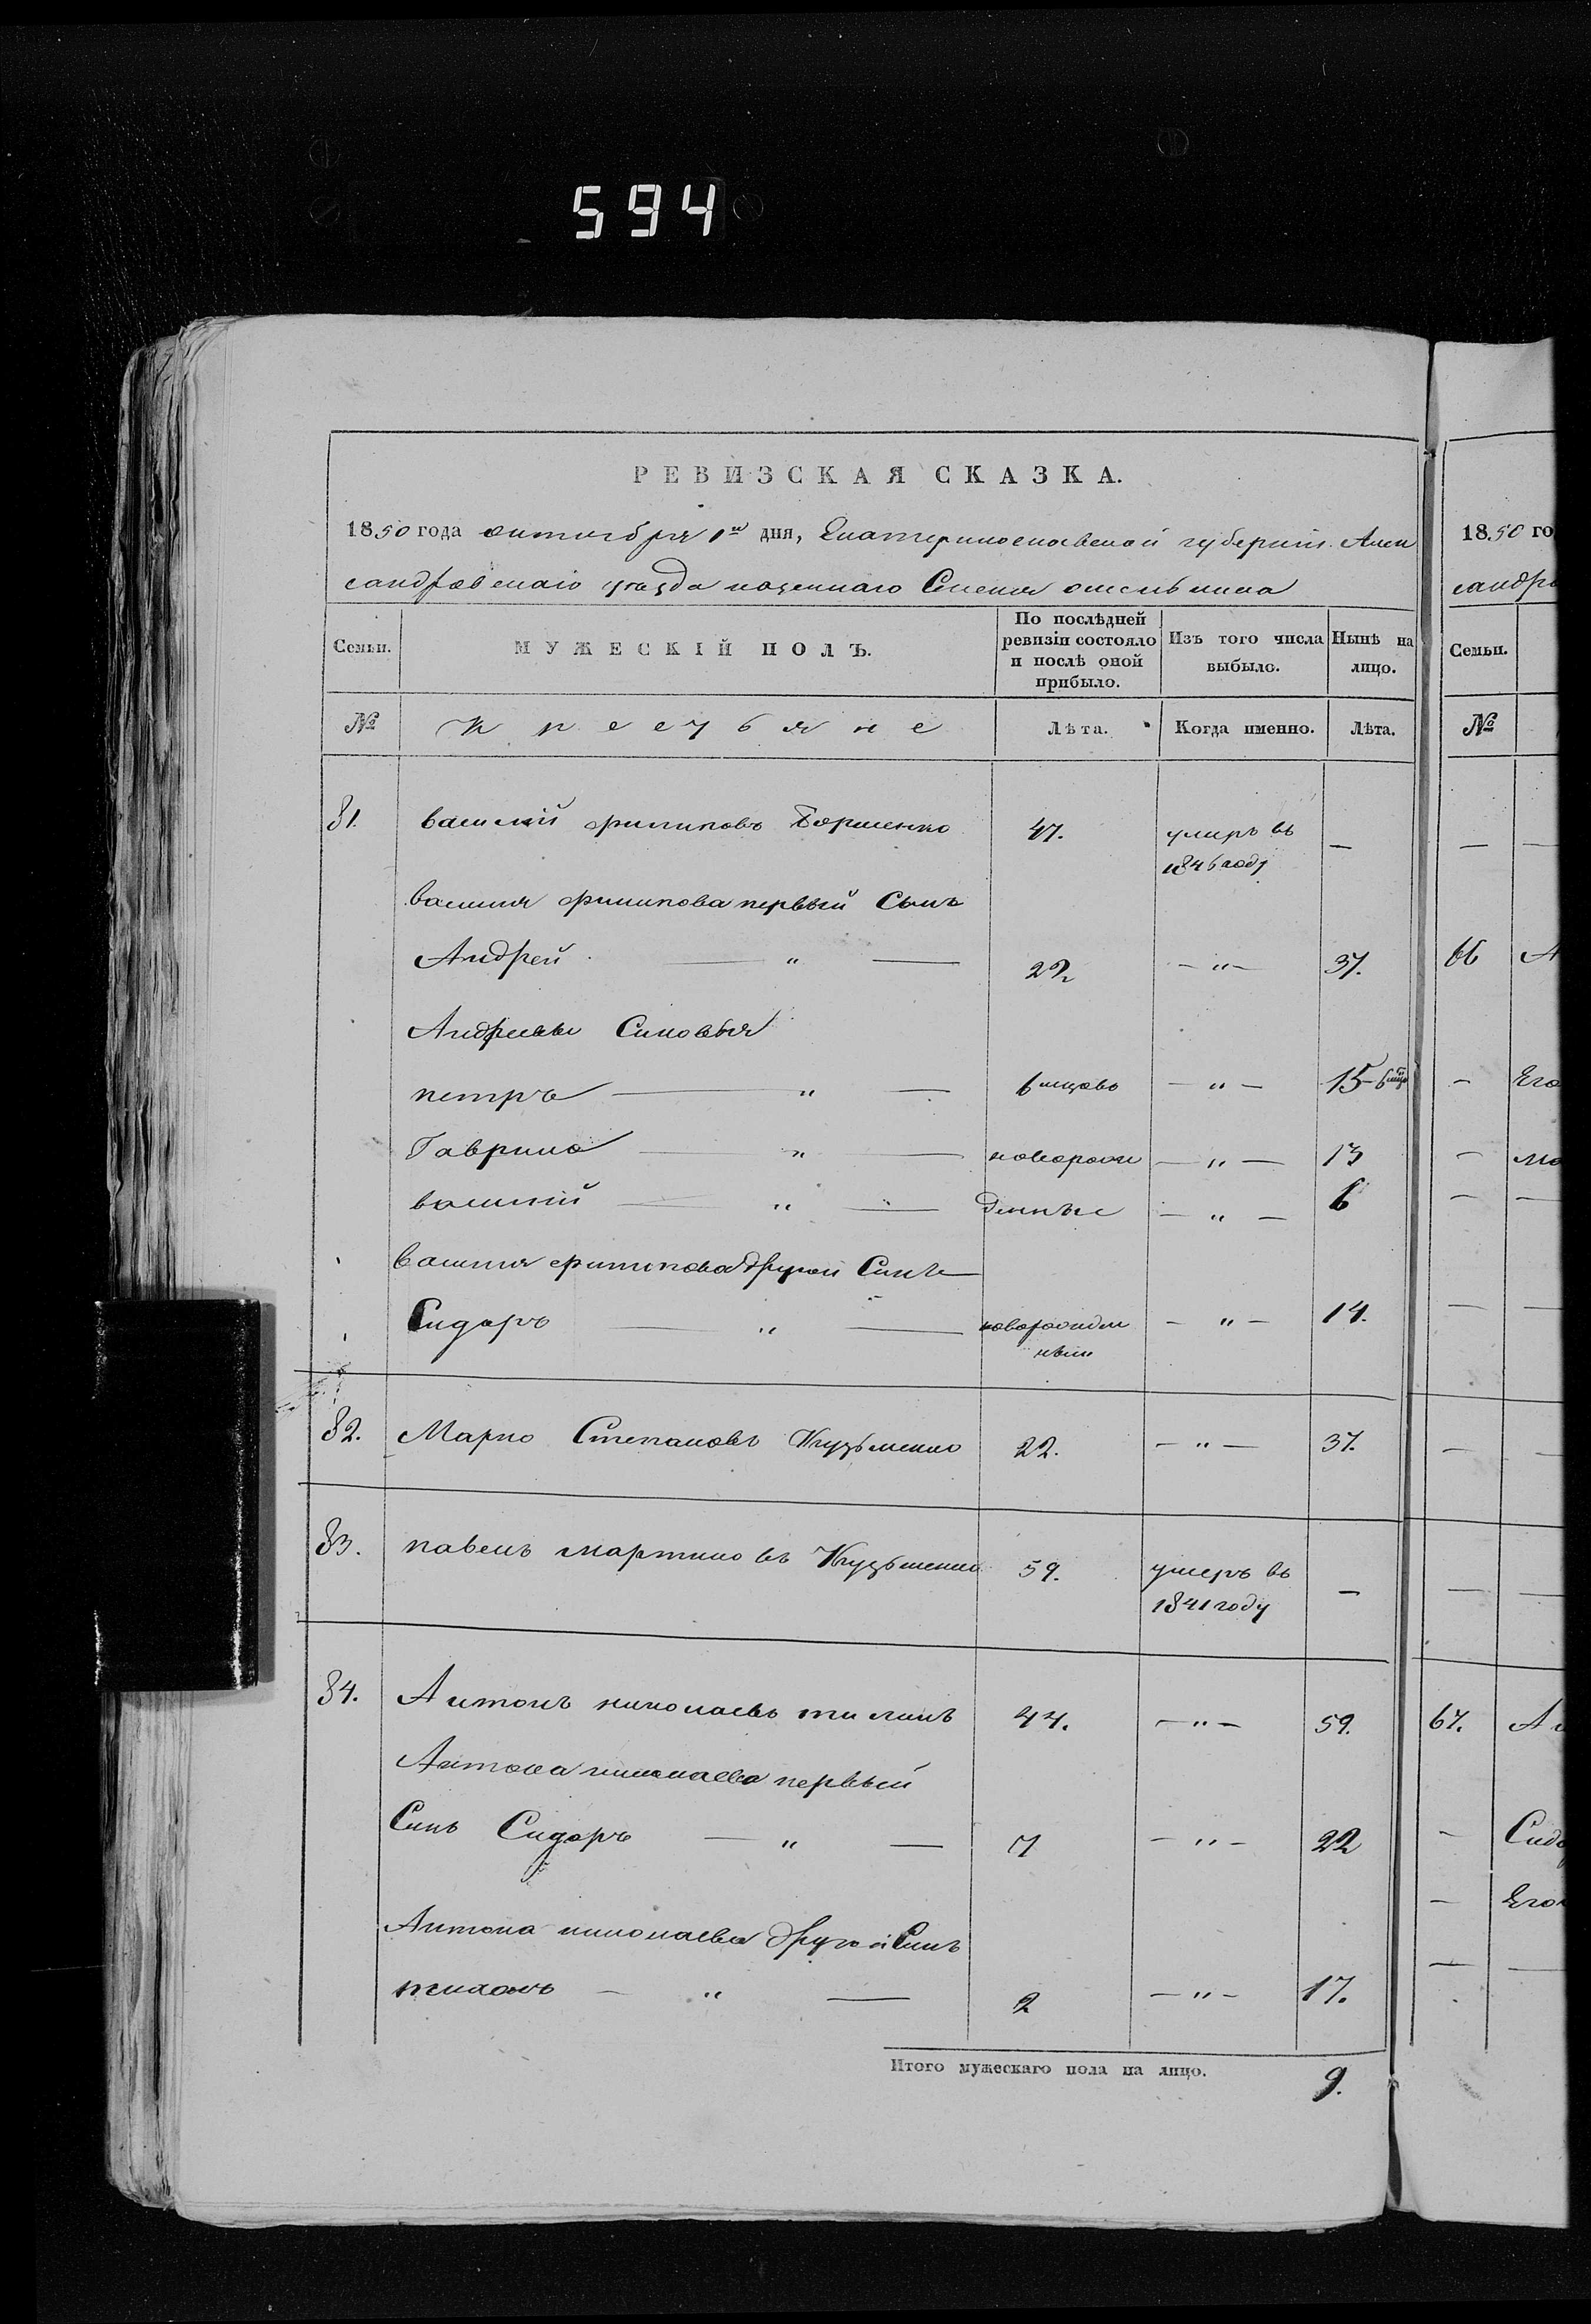 594
РЕВИЗСКАЯ СКАЗКА.
1850 года октября 1го дня, Екатеринославской губернiи Алек
сандровскаго уѣзда казеннаго Селенiя
Семьи.
МУЖЕСКIЙ ПОЛЪ.
По послѣдней ревизiи состояло и послѣ оной прибыло.
Изъ того числа выбыло.
Нынѣ на лицо.
№
Крестьяне
Лѣта.
Когда именно.
Лѣта.
81. василiй филиповъ 47. умиръ въ 1846 году —
василия филипова первый Сынъ
Андрей — " — 22 — " — 37.
Андреевы Синовья
петръ — " — 6 мцовъ — " — 15-6
Гаврило — " — новорож — " — 13
василiй — " — денные — " — 6
василия филипова другой Синъ
Сидоръ — " — новорожден ный — " — 14.
82. Марко Степановъ Кузьменко 22. — " — 37.
83. павелъ мартиновъ Кузьменко 59. умеръ въ 1841 году —
84. Антонъ николаевъ 44. — " — 59.
Антона николаева первый
Синъ Сидоръ — " — 7 — " — 22
Антона николаева другой Синъ
тихонъ — " — 2 — " — 17.
Итого мужескаго пола на лицо. 9.
1850 го
сандро
Семьи.
№
66 А
Его
67. Ан
Сидо
Его